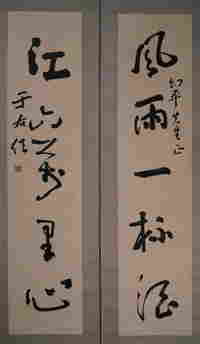 風雨一杯酒
先生正
江山萬里心
于右任